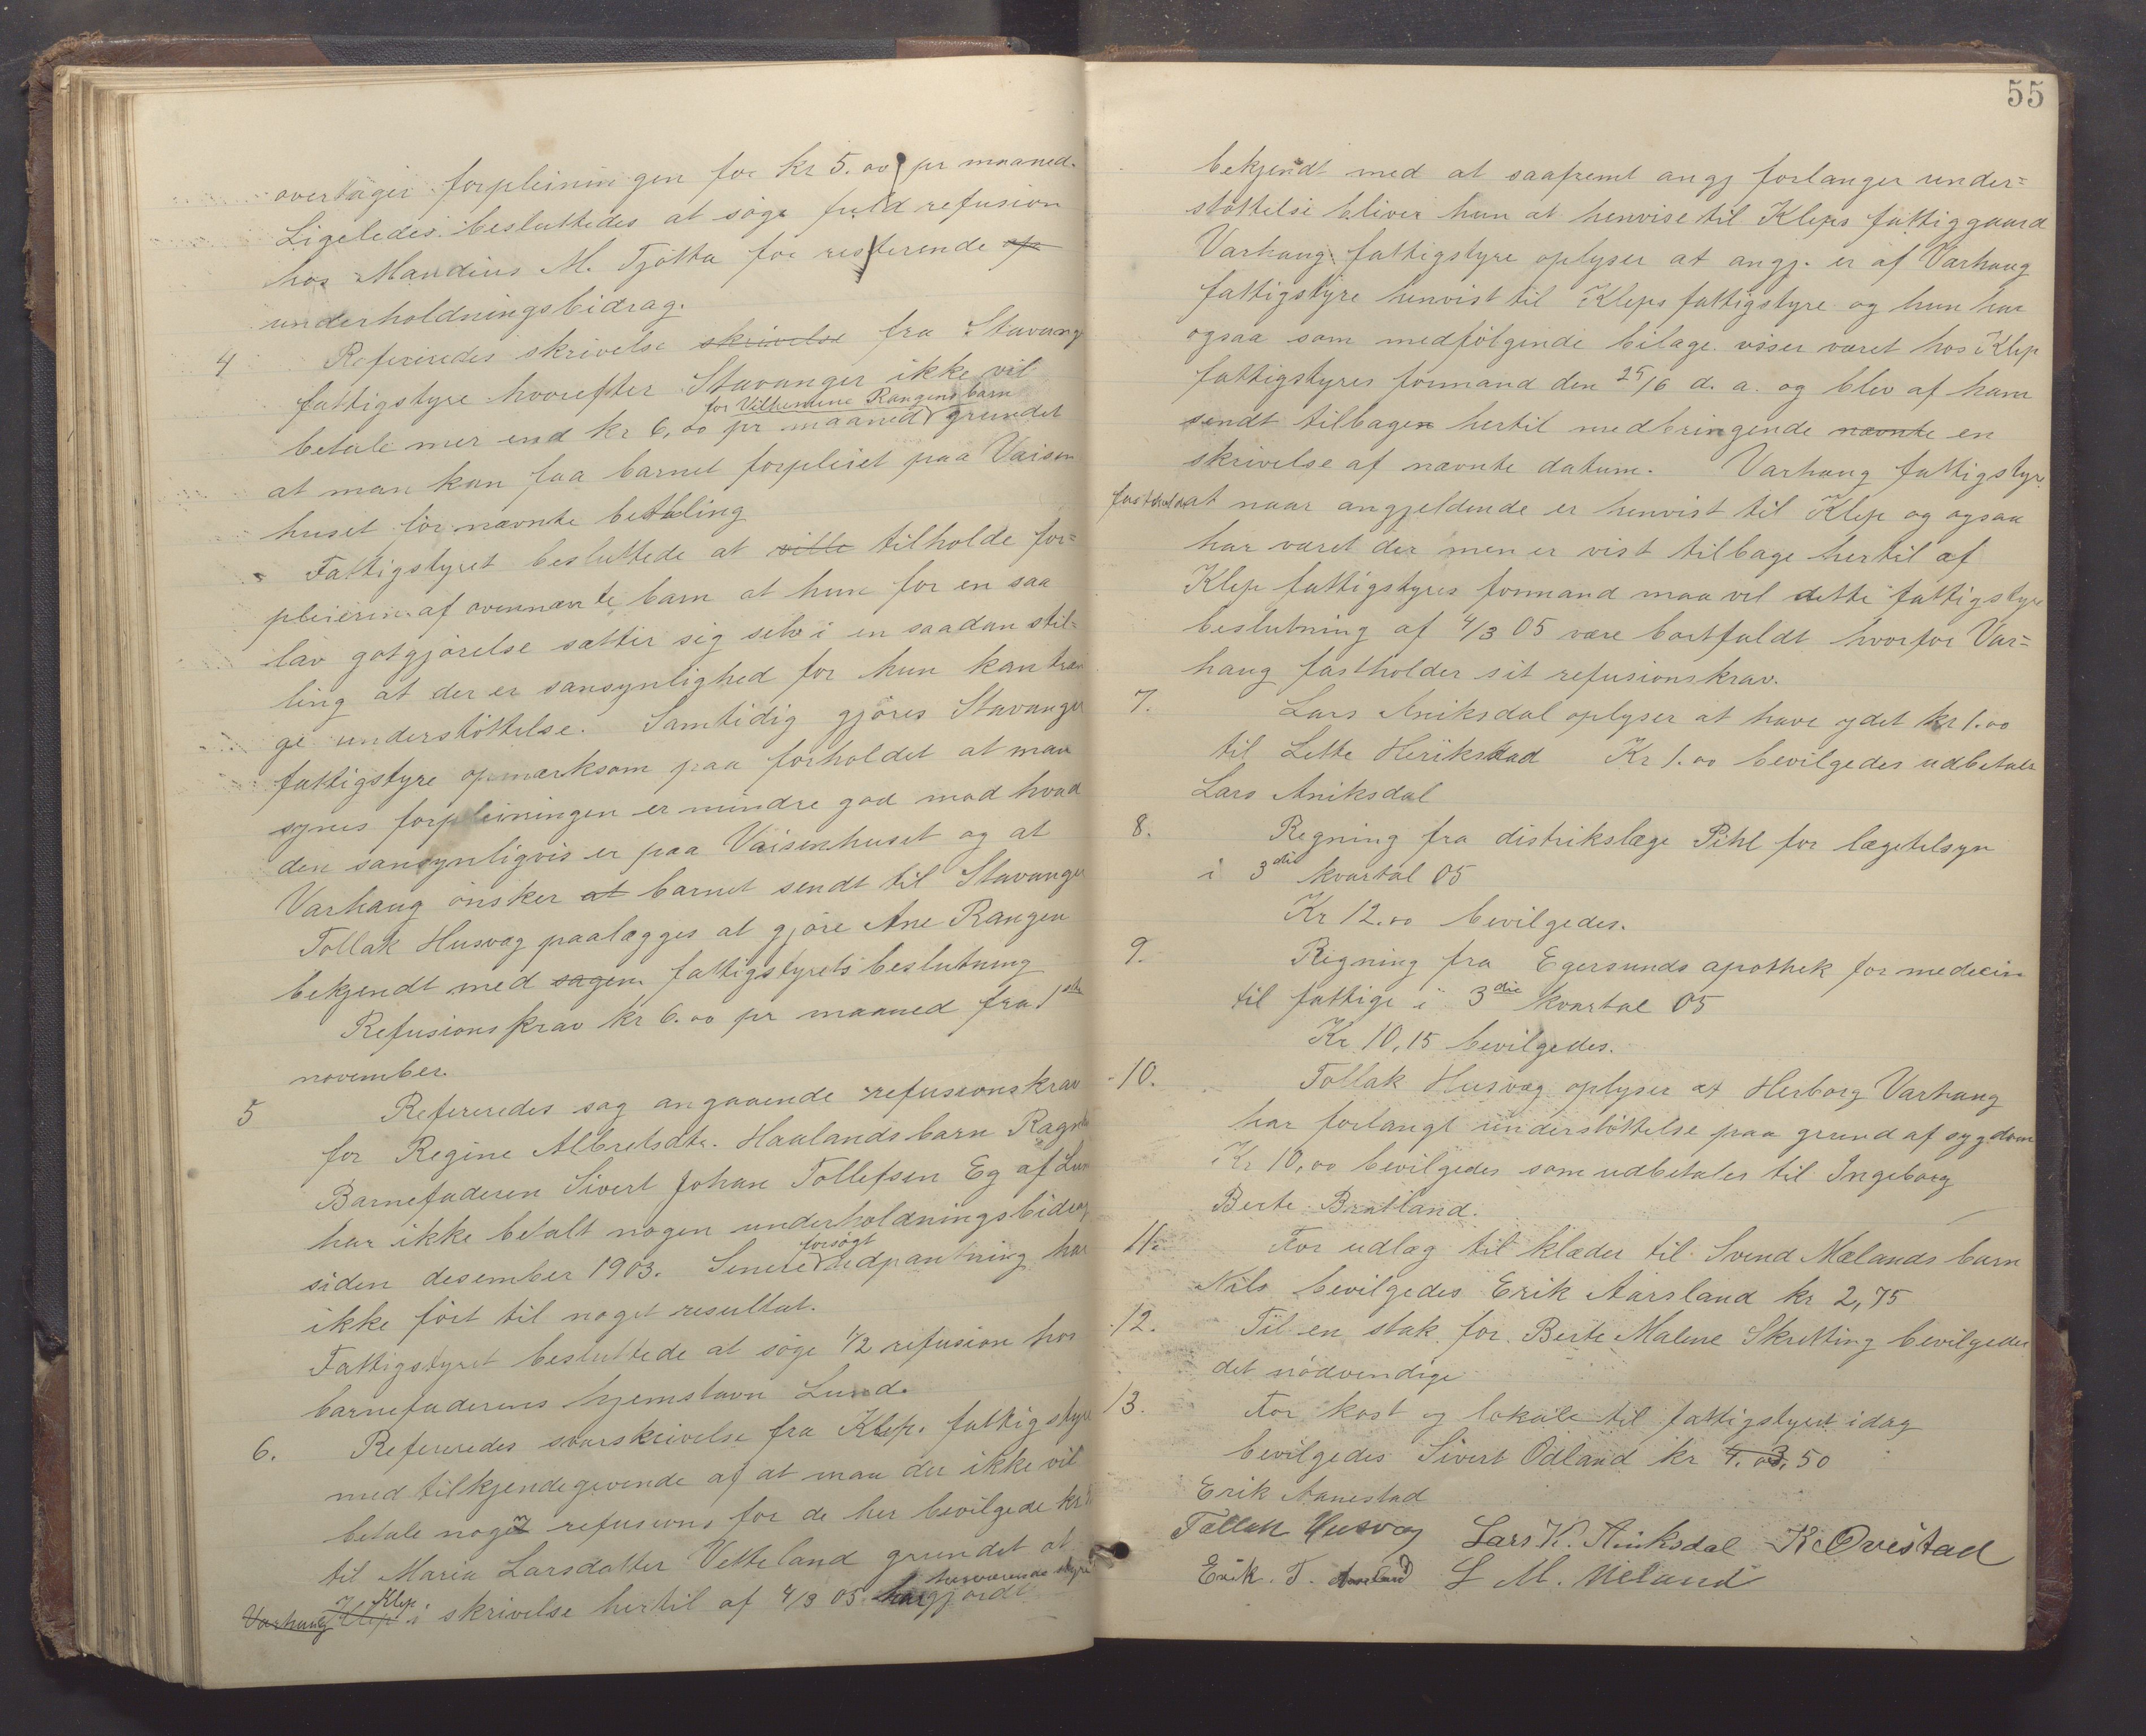 overtager forpleiningen for kr 5.00 pr maaned.
Ligeledes besluttedes at søge fuld refusion
hos Mandius M. Tjøtta for resterende
underholdningsbidrag.
4 Refereredes skrivelse skrivelse fra Stavang
fattigstyre hvorefter Stavanger ikke vil
for Vilhemine Rangens barn
betale mer end kr 6,00 pr maaned grundet
at man kan faa barnet forpleiet paa Vaisen
huset for nævnte betaling
Fattigstyret besluttede at ville tilholde for=
pleierin. af ovennævnte barn at hun for en saa
lav gotgjørelse sætter sig selv i en saadan stil=
ling at der er sansynlighed for hun kan træn
ge understøttelse. Samtidig gjøres Stavanger
fattigstyre opmærksom paa forholdet at man
synes forpleiningen er mindre god mod hvad
den sansynligvis er paa Vaisenhuset og at
Varhaug ønsker at barnet sendt til Stavanger
Tollak Husvæg paalægges at gjøre Ane Rangen
bekjendt med sagen fattigstyrets beslutning
Refusionskrav kr 6.00 pr maaned fra 1ste
november.
5 Refereredes sag angaaende refusionskrav
for Regine Albretsdtr. Haalands barn
Barnefaderen Sivert Johan Tollefsen Eg af Lun
har ikke betalt nogen underholdningsbidrag
forsøgt
siden desember 1903. Senere udpantning har
ikke ført til noget resultat.
Fattigstyret besluttede at søge 1/2 refusion hos
barnefaderens hjemstavn Lund.
6. Refereredes svarskrivelse fra Klep. fattigstyre
med tilkjendegivende af at man der ikke vil
betale nogen refusions for de her bevilgede kr
til Maria Larsdatter Vetteland grundet at
Klep herværende styre
Varhaug Klep i skrivelse hertil af 4/3 05 har gjordt
55
bekjendt med at saafremt angj forlanger under=
støttelse bliver hun at henvise til Kleps fattiggaard
Varhaug fattigstyre oplyser at angj. er af Varhaug
fattigstyre henvist til Kleps fattigstyre og hun har
ogsaa som medfølgende bilage viser været hos Klep
fattigstyres formand den 25/6 d. a. og blev af ham
sendt tilbagen hertil medbringende nævnte en
skrivelse af nævnte datum. Varhaug fattigstyre
fastholder at naar angjeldende er henvist til Klep og ogsaa
har været der men er vist tilbage hertil af
Klep fattigstyres formand maa vel dette fattigstyre
beslutning af 4/3 05 være bortfaldt hvorfor Var=
haug fastholder sit refusionskrav.
7. Lars Aniksdal oplyser at have ydet kr 1.00
til Lette Herikstad Kr 1.00 bevilgedes udbetalt
Lars Aniksdal
8. Regning fra distrikslæge Pihl for lægetelsyn
i 3die kvartal 05
Kr 12.00 bevilgedes.
9. Regning fra Egersunds apothek for medecin
til fattige i 3die kvartal 05
Kr 10,15 bevilgedes.
10. Tollak Husvæg oplyser at Herborg Varhaug
har forlangt understøttelse paa grund af sygdom
Kr 10,00 bevilgedes som udbetales til Ingeborg
Berte Bratland.
11. For udlæg til klæder til Svend Mælands barn
Nils bevilgedes Erik Aarsland kr 2,75
12. Til en stak for Berte Malene Skretting bevilgedes
det nødvendige
13. For kost og lokale til fattigstyret idag
bevilgedes Sivert Odland kr 4.00 3,50
Erik Aanestad
Tollak Husvæg Lars K. Aniksdal K. Ovestad
Erik. T. Aarsland L M. Mæland